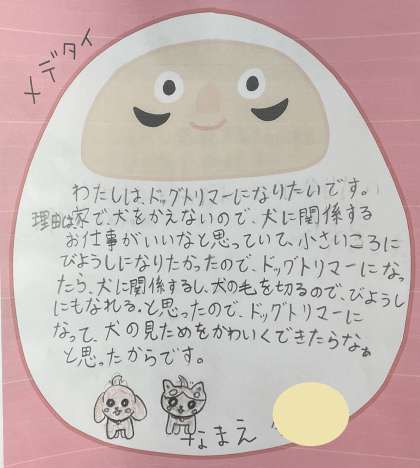 メデタイ
わたしは、ドッグトリマーになりたいです。
理由は家で、犬をかえないので、犬に関係する
お仕事がいいなと思っていて、小さいころに
びようしになりたかったので、ドッグトリマーになっ
たら、犬に関係するし、犬の毛を切るので、びようし
にもなれる。と思ったので、ドッグトリマーに
なって、犬の見ためをかわいくできたらなぁ
と思ったからです。
なまえ